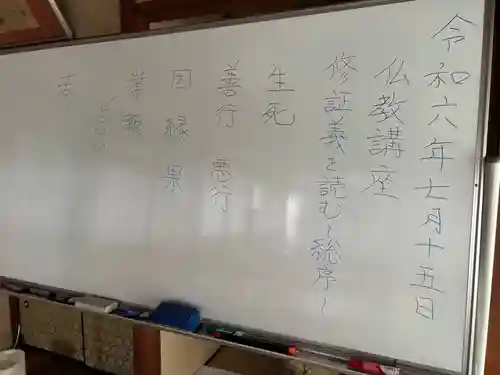 令和六年七月十五日
仏教講座
修証義を読む~総序~
生死
善行 悪行
因縁果
業報
苦